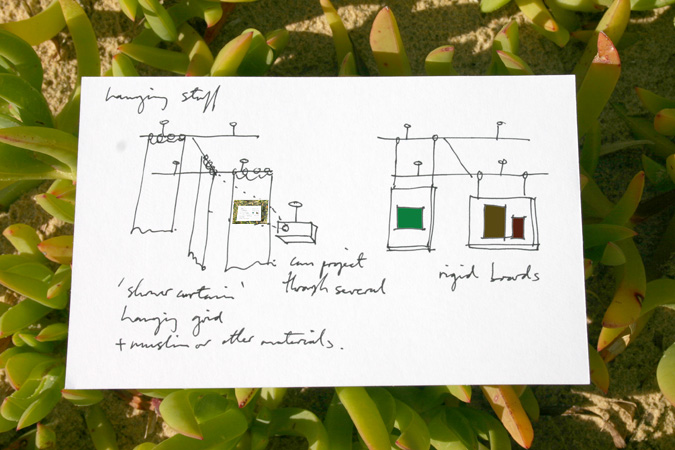 hanging stuff
can project
through several
rigid boards
'shower curtain'
hanging grid
+ muslin or other materials.